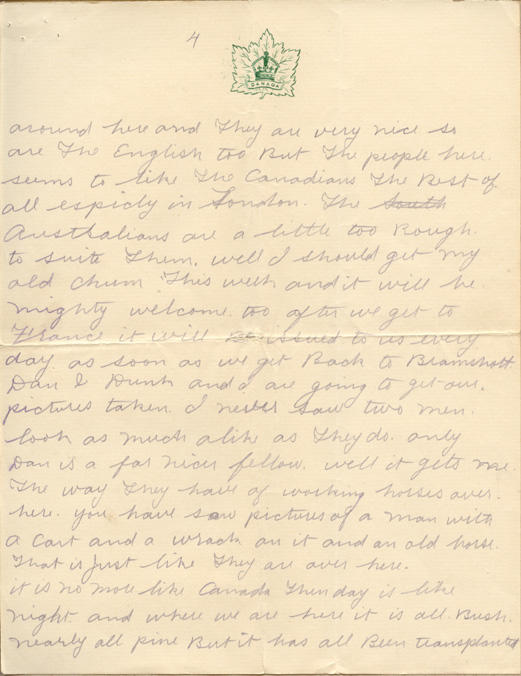 4
CANADA
around here and They are very nice so
are The English too But The people here.
seems to like The Canadians The Best of
all espicly in London. The South
Australians are a little too Rough.
to suite Them. well I should get my
old chum This week and it will be
mighty welcome. too after we get to
France it will be issued to us every
day. as soon as we get Back to Bramshott
Dan & Dunk and a are going to get our.
pictures taken. I never saw two men.
look as much alike as They do. only
Dan is a far nicer fellow. well it gets me.
The way They have of working horses over.
here. you have saw pictures of a man with
a cart and a wrack on it and an old horse.
That is Just like They are over here.
it is no more like Canada Then day is like
night. and where we are here it is all Bush.
nearly all pine But it has all Been transplanted